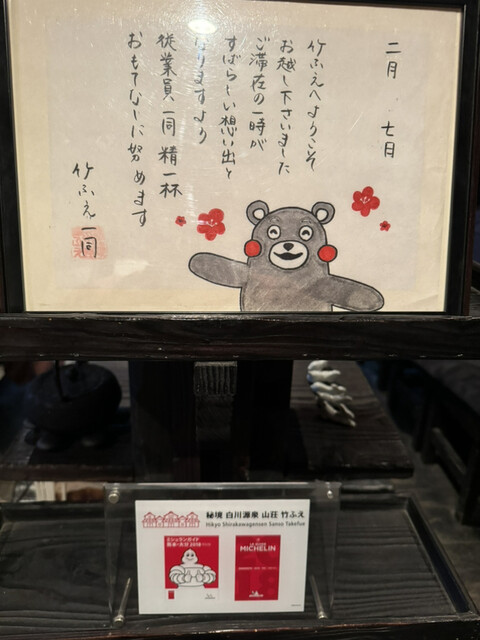 二月 七日
竹ふえへようこそ
お越し下さいました
ご滞在の一時が
すばらしい想い出と
なりますよう
従業員一同 精一杯
おもてなしに努めます
竹ふえ一同
秘境 白川源泉 山荘 竹ふえ
Hikyo Shirakawagensen Sanso Takefue
ミシュランガイド
熊本・大分 2018
MICHELIN